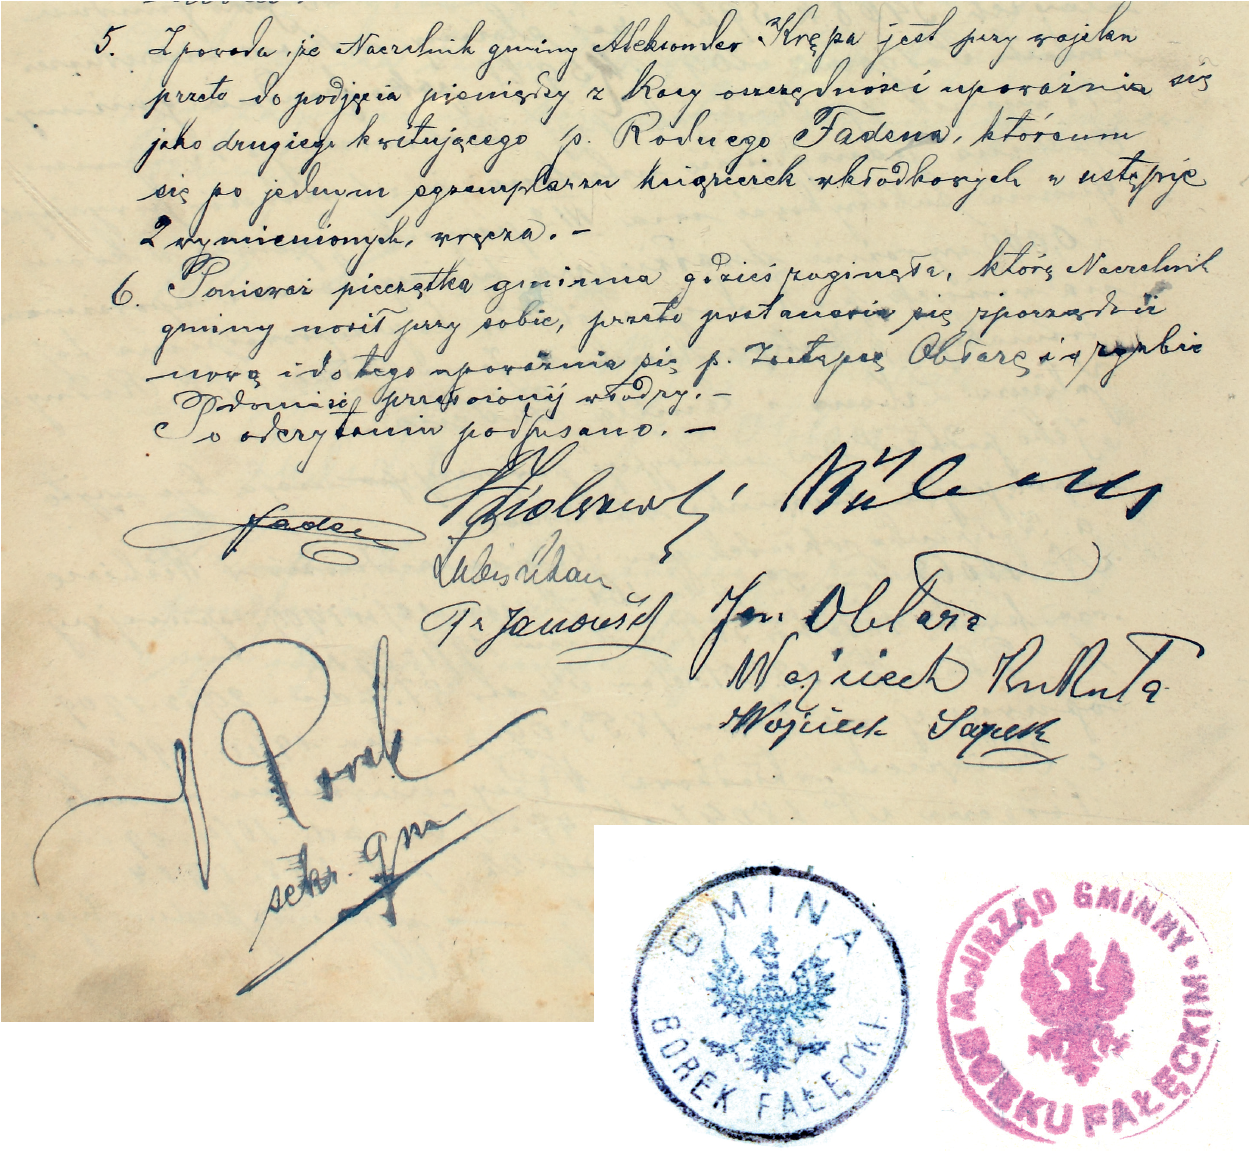 5. Z powodu, że Naczelnik gminy Aleksander Krępa jest przy wojsku
przeto do podjęcia pieniędzy z kasy oszczędności upoważnia się
jako drugiego kwitującego p. Fadena, któremu
się po jednym egzemplarzu książeczek wkładkowych w ustępie
2 wymienionych, wręcza. —
6. Ponieważ pieczątka gminna gdzieś zaginęła, którę Naczelnik
gminy nosił przy sobie, przeto postanawia się sporządzić
nową i do tego upoważnia się p. Zastępcę Obtarę i o zgubie
donieść przełożonej władzy. —
Po odczytaniu podpisano. —
Faden
Jan Obtara
Fr Janowski
Wojciech Kukuła
Wojciech Sapek
Porek
sekr. gm
GMINA
BOREK FAŁĘCKI
URZĄD GMINNY
W BORKU FAŁĘCKIM